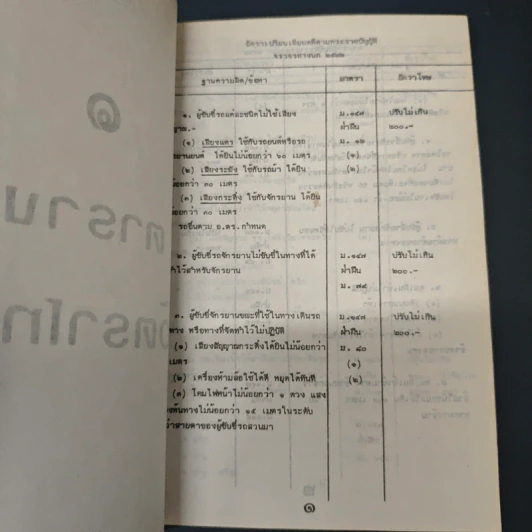 อัตราเปรียบเทียบคดีตามพระราชบัญญัติ
จราจรทางบก ๒๕๒๒
ฐานความผิด/ข้อหา มาตรา อัตราโทษ
๑. ผู้ขับขี่รถแต่ละชนิดไม่ใช้เสียง ม.๑๔๗ ปรับไม่เกิน
ญาณ.- ฝ่าฝืน ๒๐๐.-
(๑) เสียงแตร ใช้กับรถยนต์หรือรถ ม. ๑๒
รยานยนต์ ได้ยินไม่น้อยกว่า ๖๐ เมตร (๑)
(๒) เสียงระฆัง ใช้กับรถม้า ได้ยิน (๒)
น้อยกว่า ๓๐ เมตร
(๓) เสียงกระดิ่ง ใช้กับจักรยาน ได้ยิน
น้อยกว่า ๓๐ เมตร
รถอื่นตาม อ.ตร. กำหนด
๒. ผู้ขับขี่รถจักรยานไม่ขับขี่ในทางที่ได้ ม.๑๔๗ ปรับไม่เกิน
ทำไว้สำหรับจักรยาน ฝ่าฝืน ๒๐๐.-
ม. ๗๙
๓. ผู้ขับขี่จักรยานขณะที่ใช้ในทางเดินรถ ม.๑๔๗ ปรับไม่เกิน
ทาง หรือทางที่จัดทำไว้ไม่ปฏิบัติ ฝ่าฝืน ๒๐๐.-
(๑) เสียงสัญญาณกระดิ่งได้ยินไม่น้อยกว่า ม. ๘๐
เมตร (๑)
(๒) เครื่องห้ามล้อใช้ได้ดี หยุดได้ทันที (๒)
(๓) โคมไฟหน้าไม่น้อยกว่า ๑ ดวง แสง
พื้นทางไม่น้อยกว่า ๑๕ เมตรในระดับ
ว่าสายตาของผู้ขับขี่รถสวนมา
๑